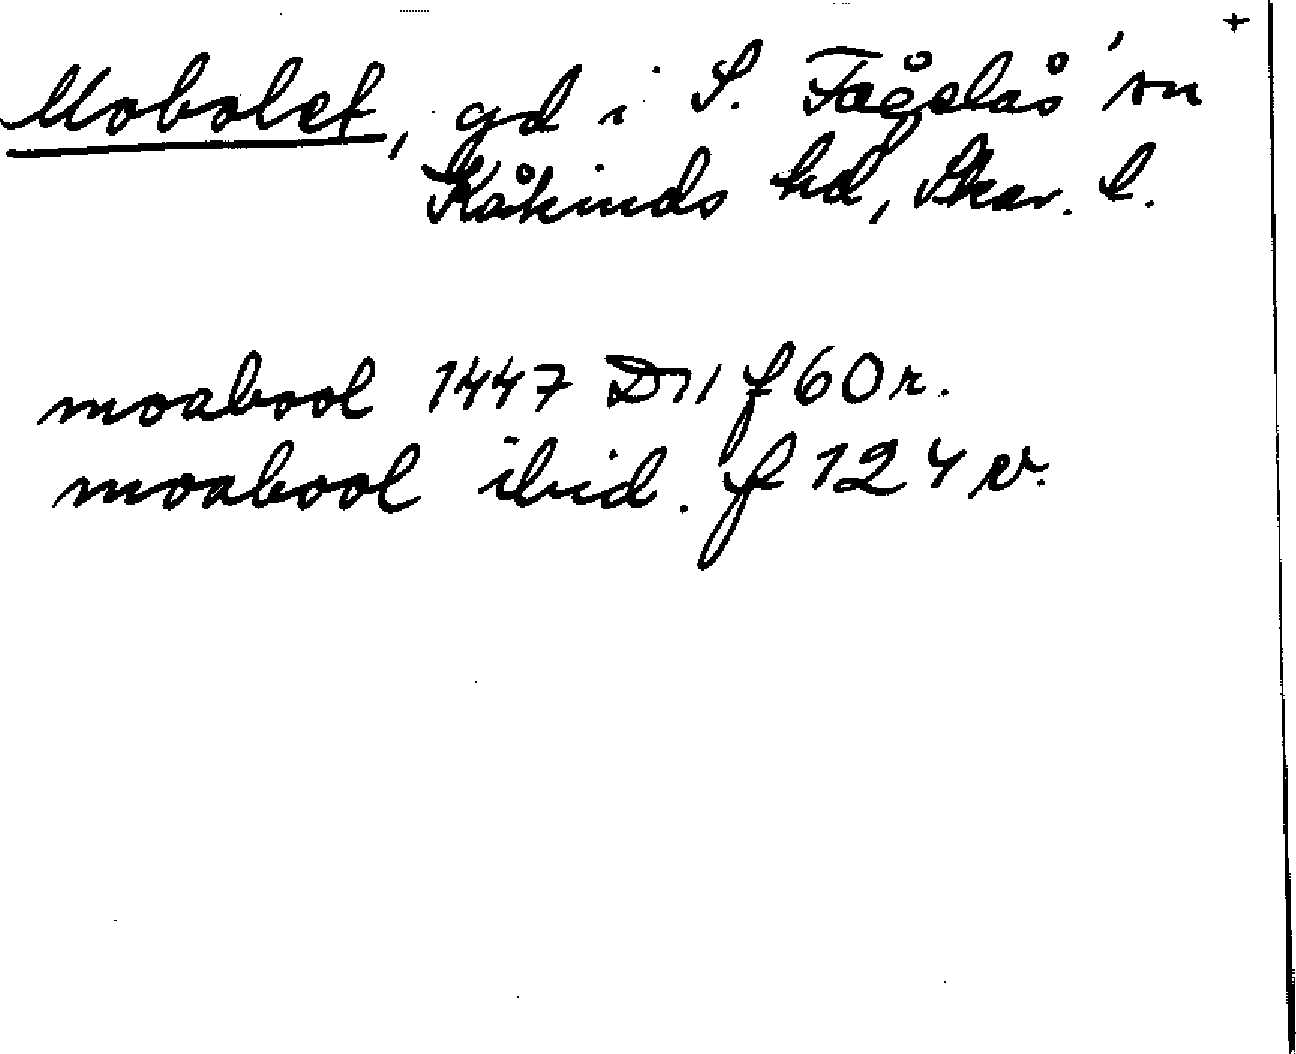 +
Mobolet, gd i S. Fågelås sn
Kåkinds hd, Skar. l.
moabool 1447 D11 f 60 r.
moabool ibid. f 124 v.